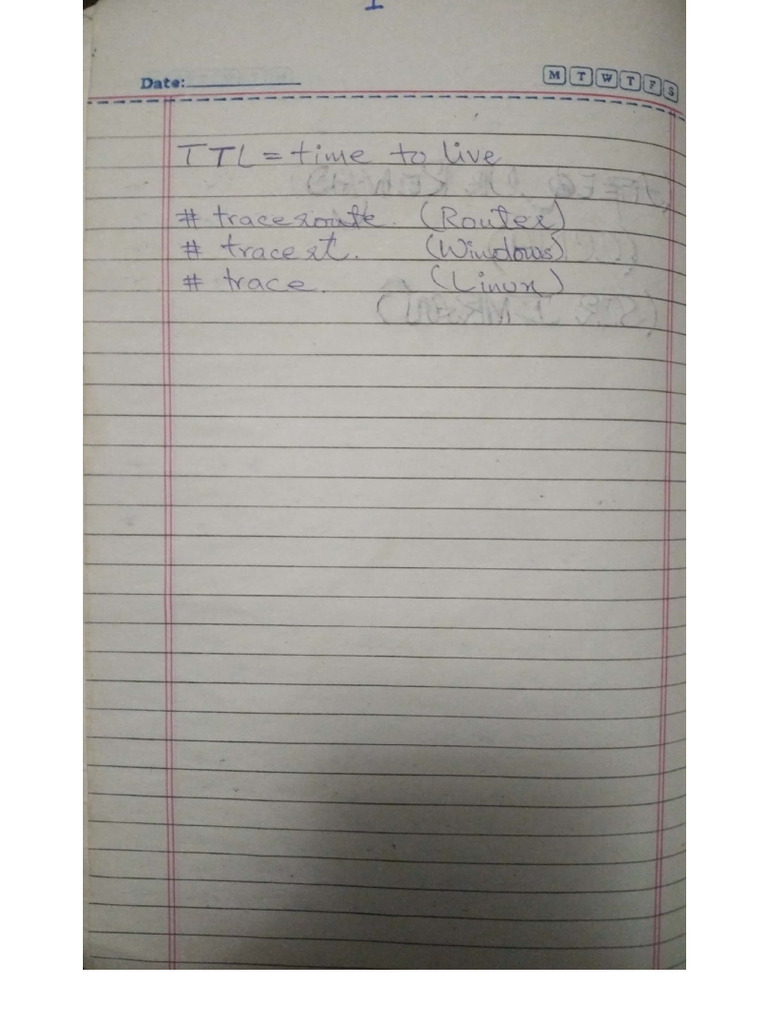 1
Date:
M T W T F S
TTL = time to live
# traceroute. (Router)
# tracert. (Windows)
# trace. (Linux)
(SIR IMRAN)